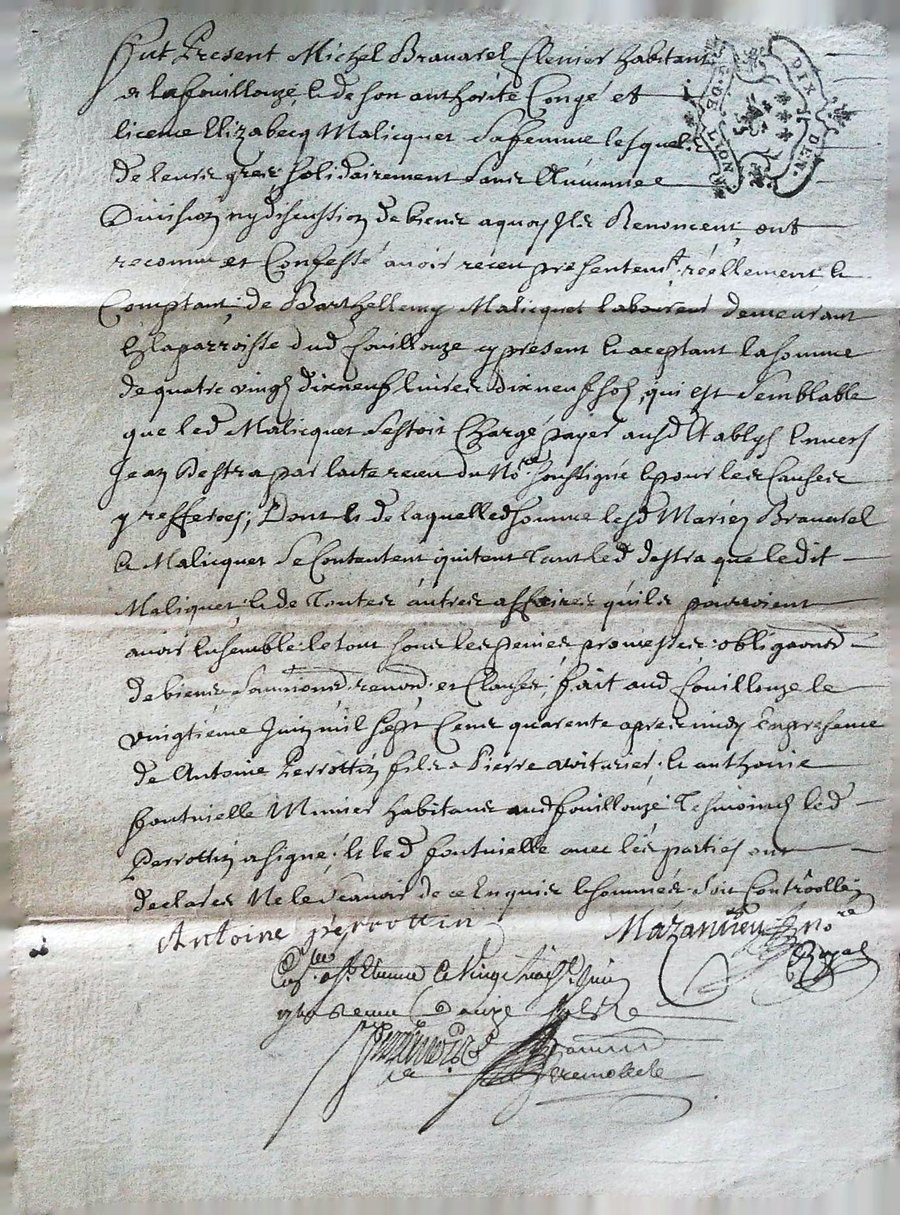 Fut Present Michel Brauarel Clenier habitant
a lafouillouze, & de son authorité Congé et
licence Elizabecq Malicquet Safemme lesquels
de leurs grez solidairement sans Aucunnee
Diuision ny discussion de biens aquoy Ils Renoncent, ont
reconnu et Confessé auoir receu presentemt. réellement &
Comptant, de Barthellemy Malicquet laboureur demeurant
En laparroisse dud fouillouze cy present & aceptant lasomme
de quatre vingt dixneuf liures dixneuf sols, qui est Semblable
que led Malicquet Sestoit Chargé payer ausd Etablys Enuers
Jean Destra par lacte receu du Nore. soussigné & pour les Causes
y refferées; Dont & de laquelle d somme lesd Mariez Brauarel
& Malicquet Se Contentent quitent Tant led destra que ledit
Maliquet & de Toutes autres affaires quils pourroient
auoir Ensemble le tout sous les peines promesses obligaond
de biens Soumiond. renond. et Clauses; fait aud fouillouze le
vingtième Juin mil sept Cens quarente apres midy En presence
de Antoine Perrottin fils a Pierre voiturier, & anthoine
fontuielle Munier habitans aud fouillouze Tesmoins led
Perrottin a signé, & led fontuielle auec les parties ont
declarés Ne le Scauoir de ce Enquis & sommés. Soit Controollé
Antoine perrottin Mazandieu nore
Royal
a St. Etienne le Vingt Juin
receu douze sols